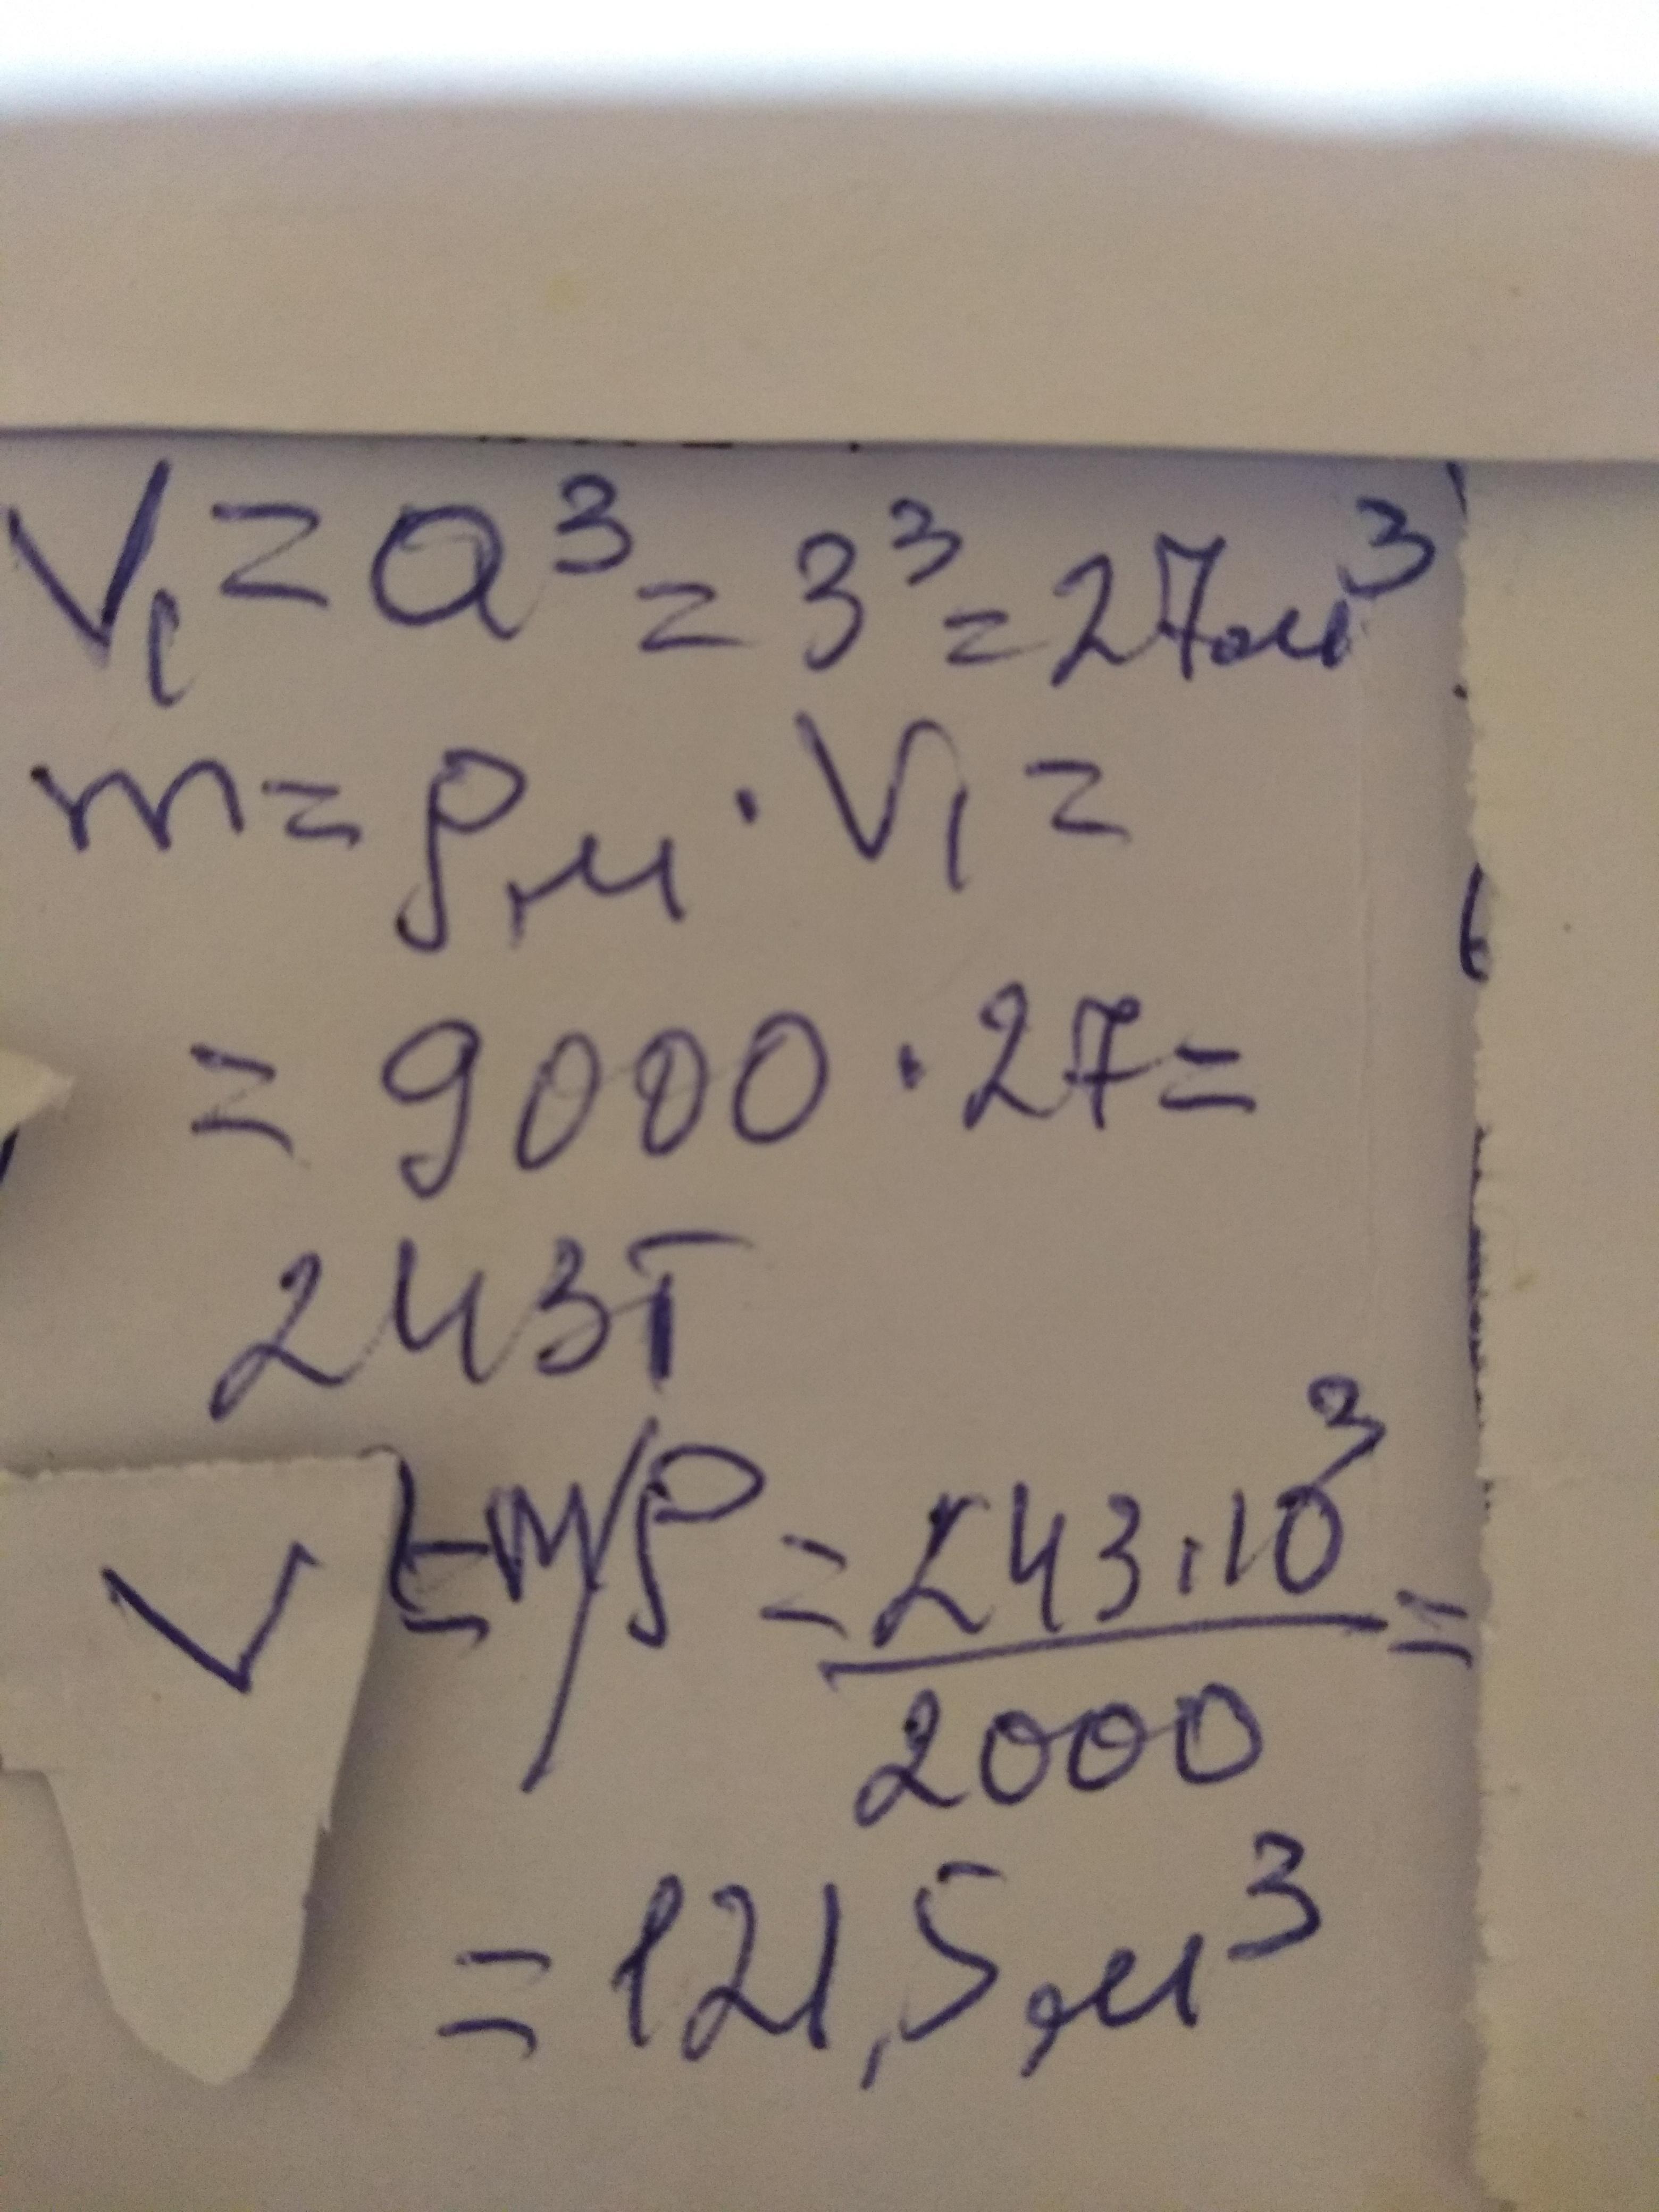 V₁ = a³ = 3³ = 27м³
m = ρм · V₁ =
= 9000 · 27 =
243т
V = m/ρ = 243·10³/2000 =
= 121,5 м³